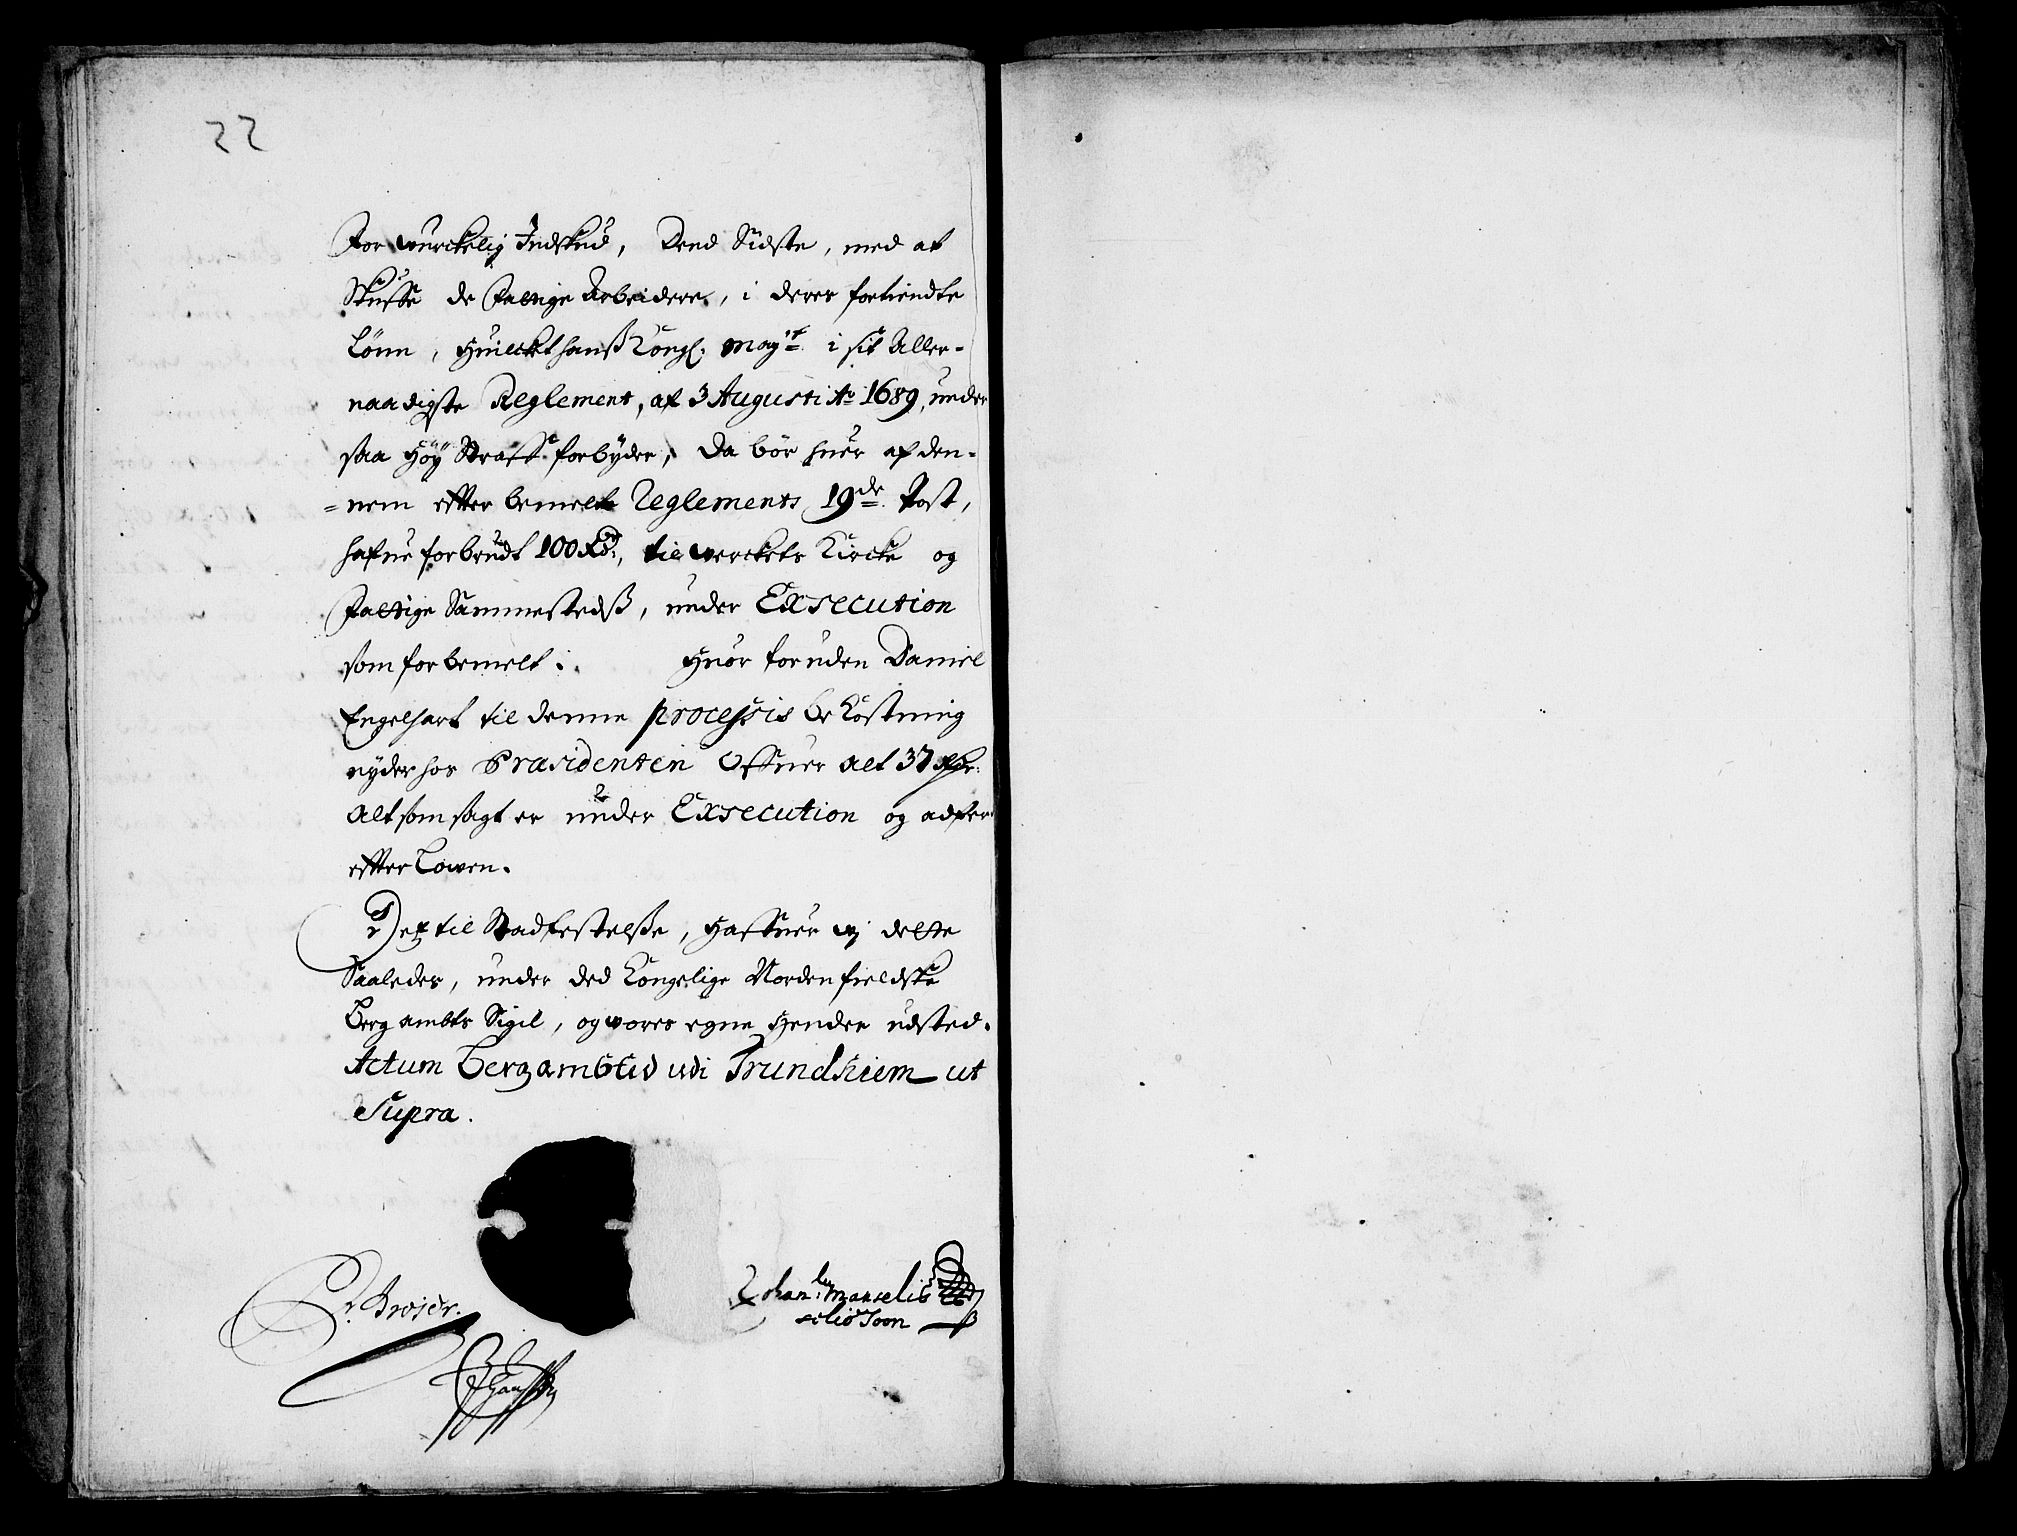 22
For wurckelig Indskud, Dend Sidste, med at
Skuffe de Fattige Arbeidere, i deres fortiendte
Lønn, Huilcket hanß Kongl: Mayt: i sit Aller-
naadigste Reglement, af 3 Augusti Ao 1689, under
saa Høy Straff forbyder, Da bør huer af den-
=nem effter bemelte Reglements 19de Post,
hafue forbrudt 100 Rd:, til werckets Kircke og
Fattige Sammestedß, under Exsecution
som forbemelt. Huor foruden Daniel
Engelhart til denne processis bekostning
nyder hos Præsidenten Offuer alt 37 Rdr:
Alt som sagt er under Exsecution og adfer
effter Lowen.
Dets til Stadfestelße, Haffuer wj dette
Saaledes, under ded Kongelige Nordenfieldske
Berg ambts Sigil, og wores egne Hender udsted.
Actum Bergambtid udi Trundhiem ut
Supra.
Johan: Marselis